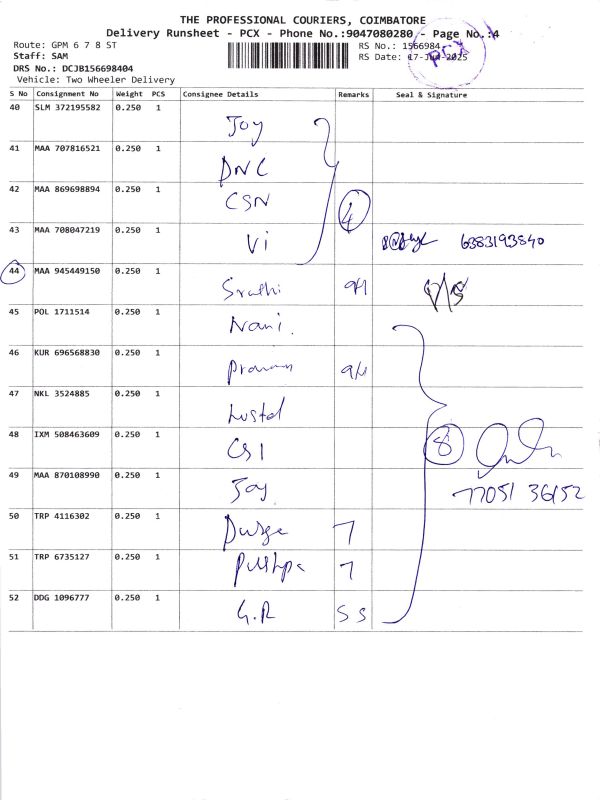 THE PROFESSIONAL COURIERS, COIMBATORE
Delivery Runsheet - PCX - Phone No.:9047080280 - Page No.:4
Route: GPM 6 7 8 ST
RS No.: 1566984
PCX
Staff: SAM
RS Date: 17-Jun-2025
DRS No.: DCJB156698404
Vehicle: Two Wheeler Delivery
S No Consignment No Weight PCS Consignee Details Remarks Seal & Signature
40 SLM 372195582 0.250 1 Joy
41 MAA 707816521 0.250 1 DNC
42 MAA 869698894 0.250 1 CSN 4
43 MAA 708047219 0.250 1 Vi 6383193840
44 MAA 945449150 0.250 1
45 POL 1711514 0.250 1 Nani.
46 KUR 696568830 0.250 1
47 NKL 3524885 0.250 1
48 IXM 508463609 0.250 1 CSI 8
49 MAA 870108990 0.250 1 Joy 77051 36152
50 TRP 4116302 0.250 1 Durga 7
51 TRP 6735127 0.250 1 Pushpa 7
52 DDG 1096777 0.250 1 G.R SS